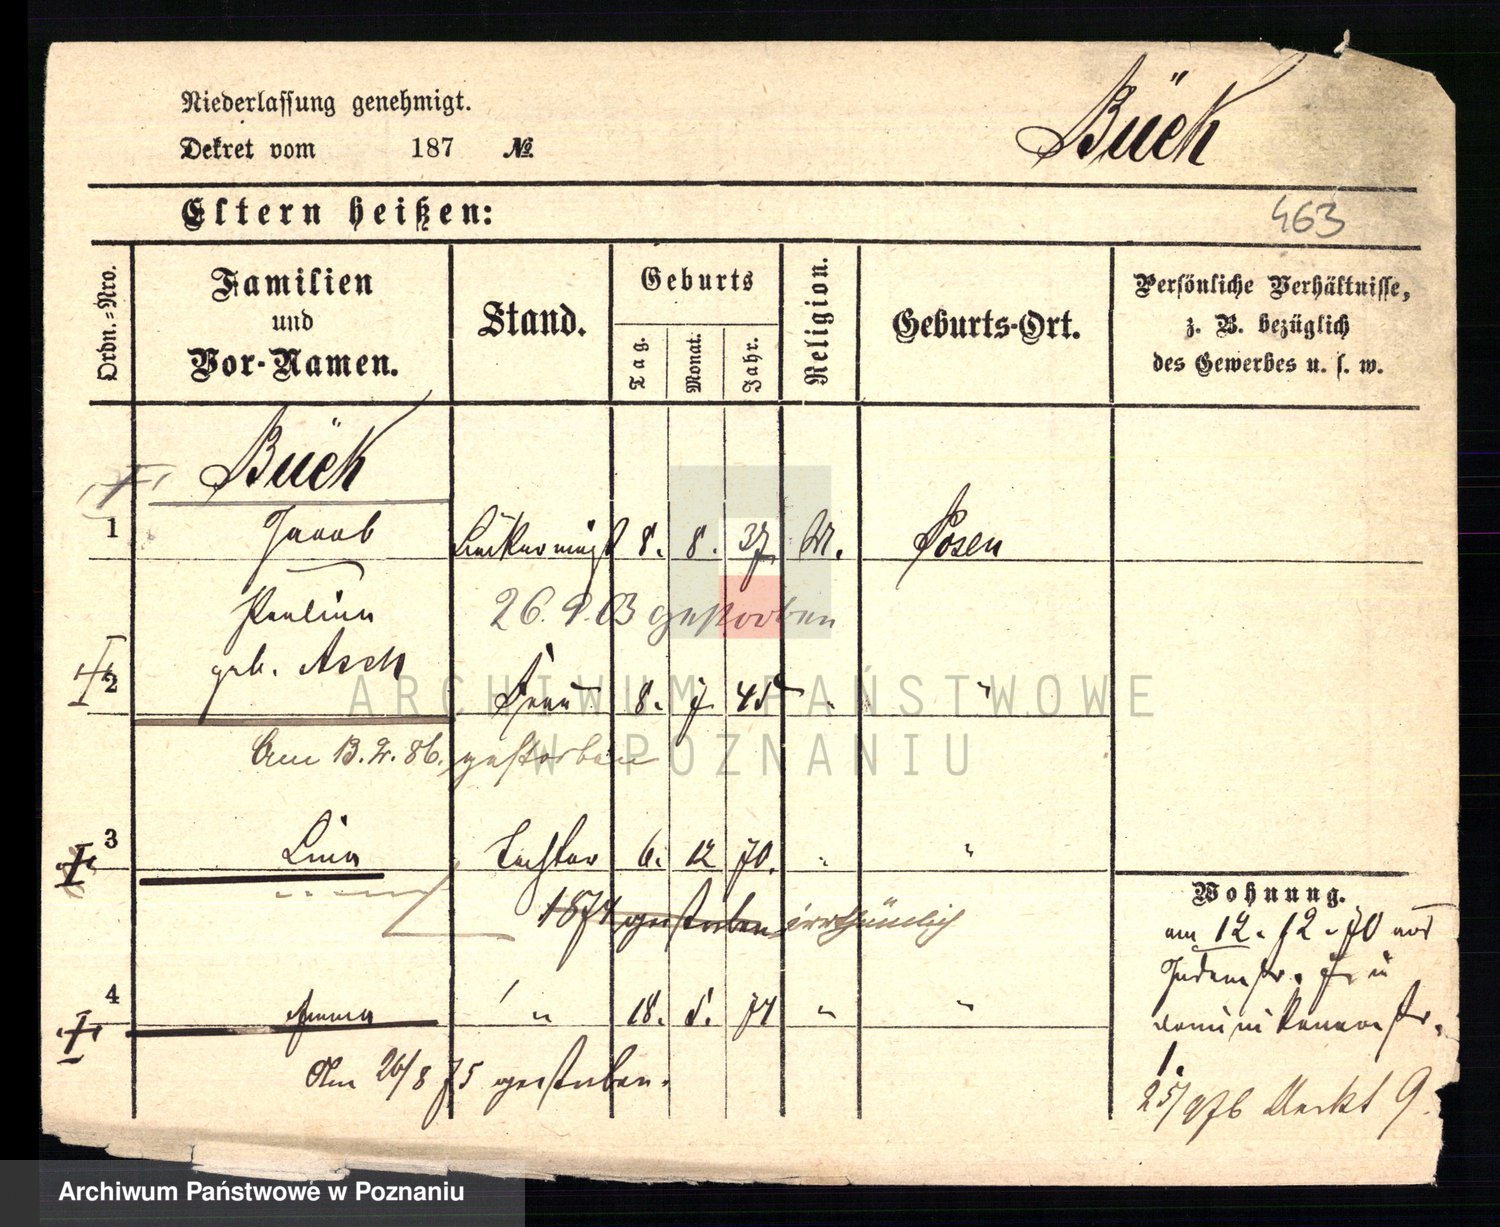 Niederlassung genehmigt.
Dekret vom 187 №
Bück
Eltern heißen:
463
Ordn.-Nro.
Familien
und
Vor-Namen.
Stand.
Geburts
Tag.
Monat.
Jahr.
Religion.
Geburts-Ort.
Persönliche Verhältnisse,
z. B. bezüglich
des Gewerbes u. s. w.
Bück
1 Jacob 8. 8. 37 M. Posen
Pauline 26. 9. 03 gestorben
geb. Asch
2 Frau 8. 7 45 " "
Am 13.2.86. gestorben
3 Lina Tochter 6. 12 70. " "
1874 gestorben irrthümlich
4 Emma " 18. 5. 74 " "
Am 26/8 75 gestorben.
Wohnung.
am 12. 12. 70 aus
Judenstr. 7. u
Dominikanerstr.
1.
25/9 76 Markt 9.
ARCHIWUM PAŃSTWOWE
W POZNANIU
Archiwum Państwowe w Poznaniu